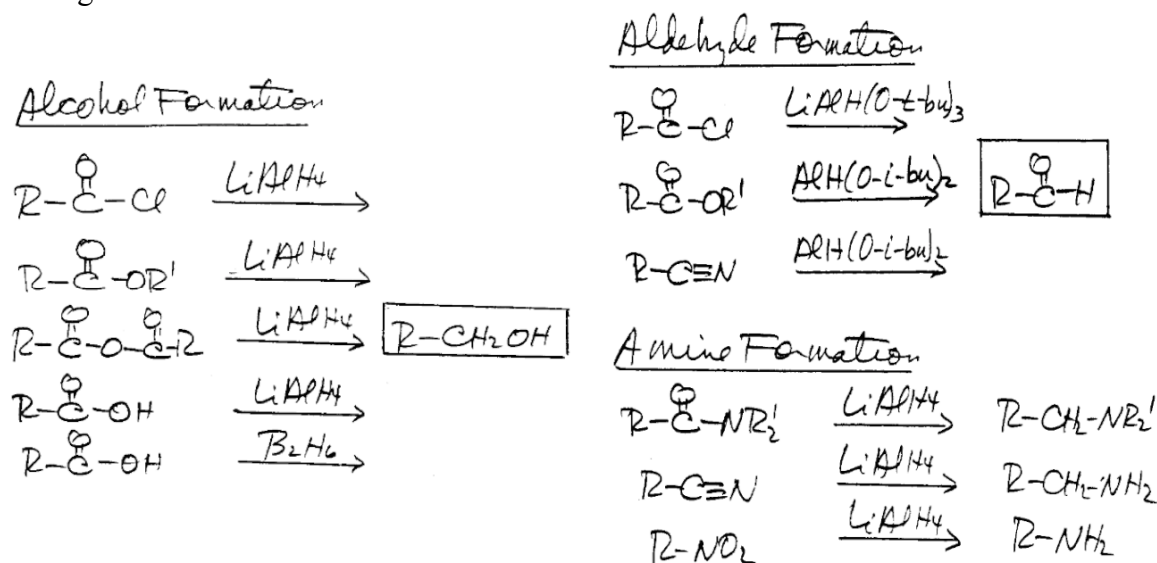 Alcohol Formation
R-C(=O)-Cl LiAlH4
R-C(=O)-OR' LiAlH4
R-C(=O)-O-C(=O)-R LiAlH4 R-CH2OH
R-C(=O)-OH LiAlH4
R-C(=O)-OH B2H6
Aldehyde Formation
R-C(=O)-Cl LiAlH(O-t-bu)3
R-C(=O)-OR' AlH(O-i-bu)2 R-C(=O)-H
R-C≡N AlH(O-i-bu)2
Amine Formation
R-C(=O)-NR2' LiAlH4 R-CH2-NR2'
R-C≡N LiAlH4 R-CH2-NH2
R-NO2 LiAlH4 R-NH2